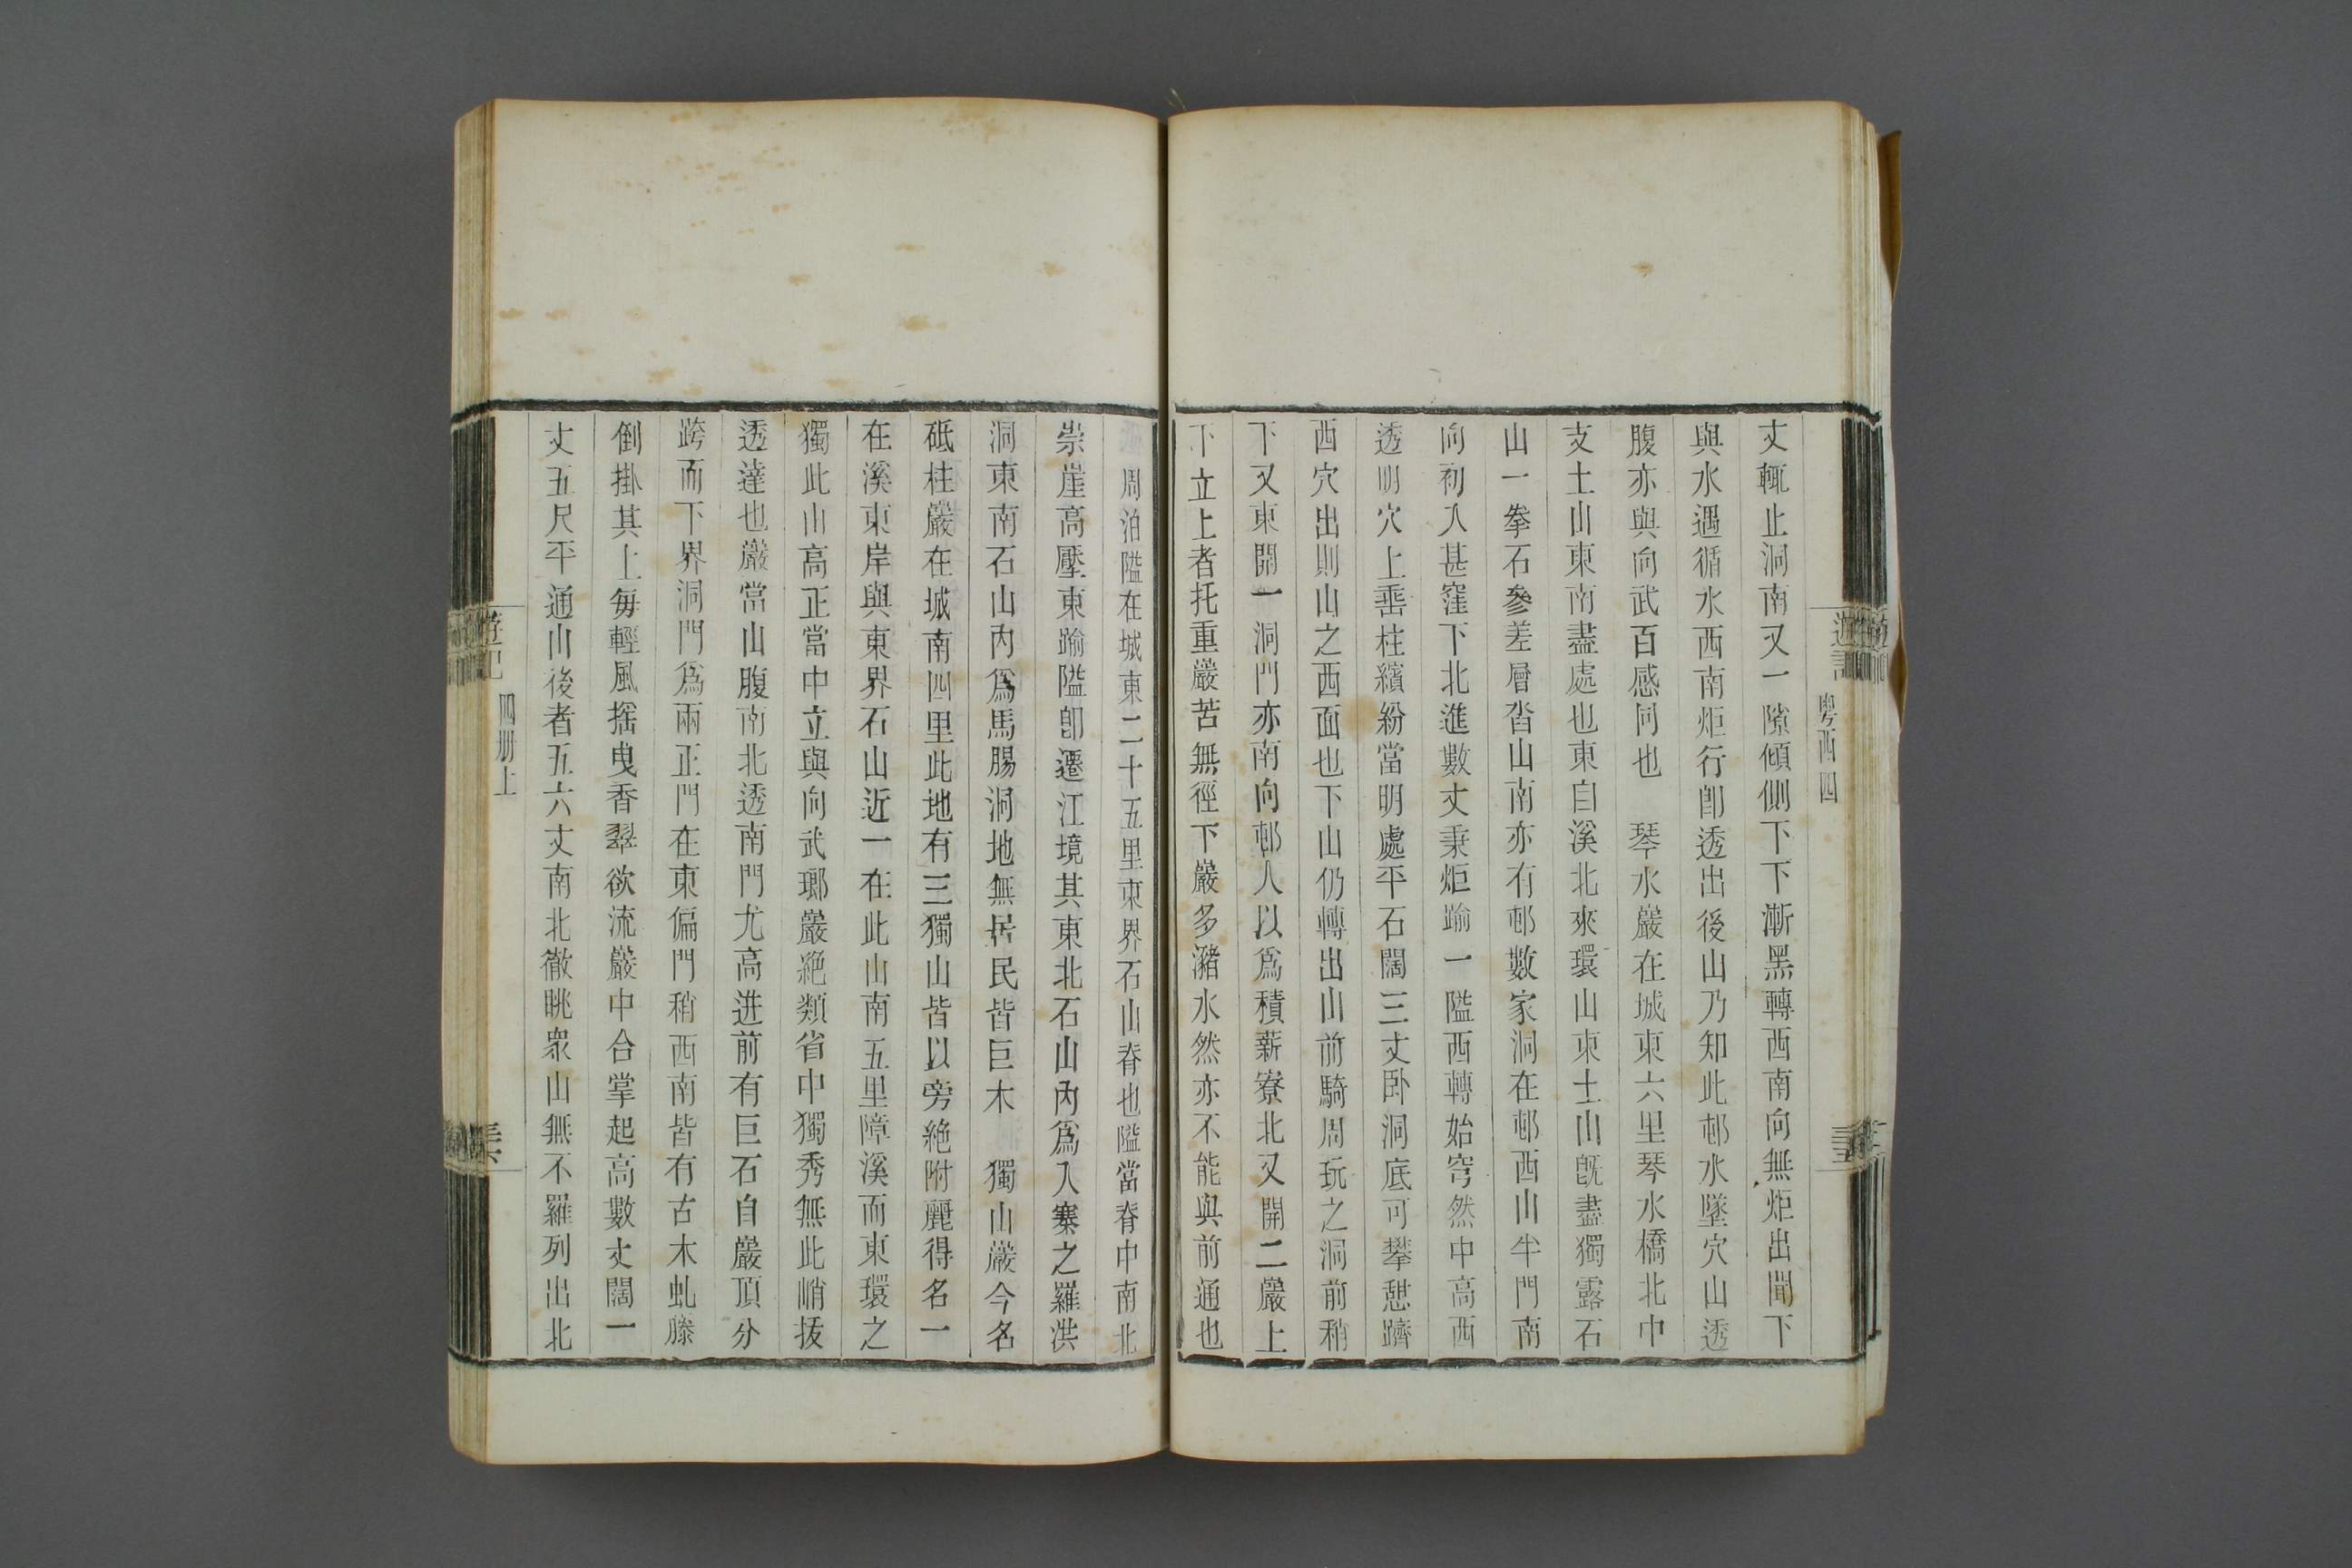 遊記
粵西四
丈輒止洞南又一隙傾側下下漸黑轉西南向無炬出聞下
與水遇循水西南炬行卽透出後山乃知此邨水墜穴山透
腹亦與向武百感同也　琴水巖在城東六里琴水橋北中
支土山東南盡處也東自溪北來環山東土山旣盡獨露石
山一拳石參差層沓山南亦有邨數家洞在邨西山半門南
向初入甚窪下北進數丈秉炬踰一隘西轉始穹然中高西
透明穴上垂柱繽紛當明處平石闊三丈卧洞底可攀憇躋
西穴出則山之西面也下山仍轉出山前騎周玩之洞前稍
下又東開一洞門亦南向邨人以爲積薪寮北又開二巖上
下立上者托重巖苦無徑下巖多瀦水然亦不能與前通也
周泊隘在城東二十五里東界石山脊也隘當脊中南北
崇崖高壓東踰隘卽遷江境其東北石山內爲八寨之羅洪
洞東南石山內爲馬腸洞地無居民皆巨木　獨山巖今名
砥柱巖在城南四里此地有三獨山皆以旁絕附麗得名一
在溪東岸與東界石山近一在此山南五里障溪而東環之
獨此山高正當中立與向武瑯巖絕類省中獨秀無此峭拔
透達也巖當山腹南北透南門尤高迸前有巨石自巖頂分
跨而下界洞門爲兩正門在東偏門稍西南皆有古木虬滕
倒掛其上每輕風搖曳香翠欲流巖中合掌起高數丈闊一
丈五尺平通山後者五六丈南北徹眺衆山無不羅列出北
遊記
四册上